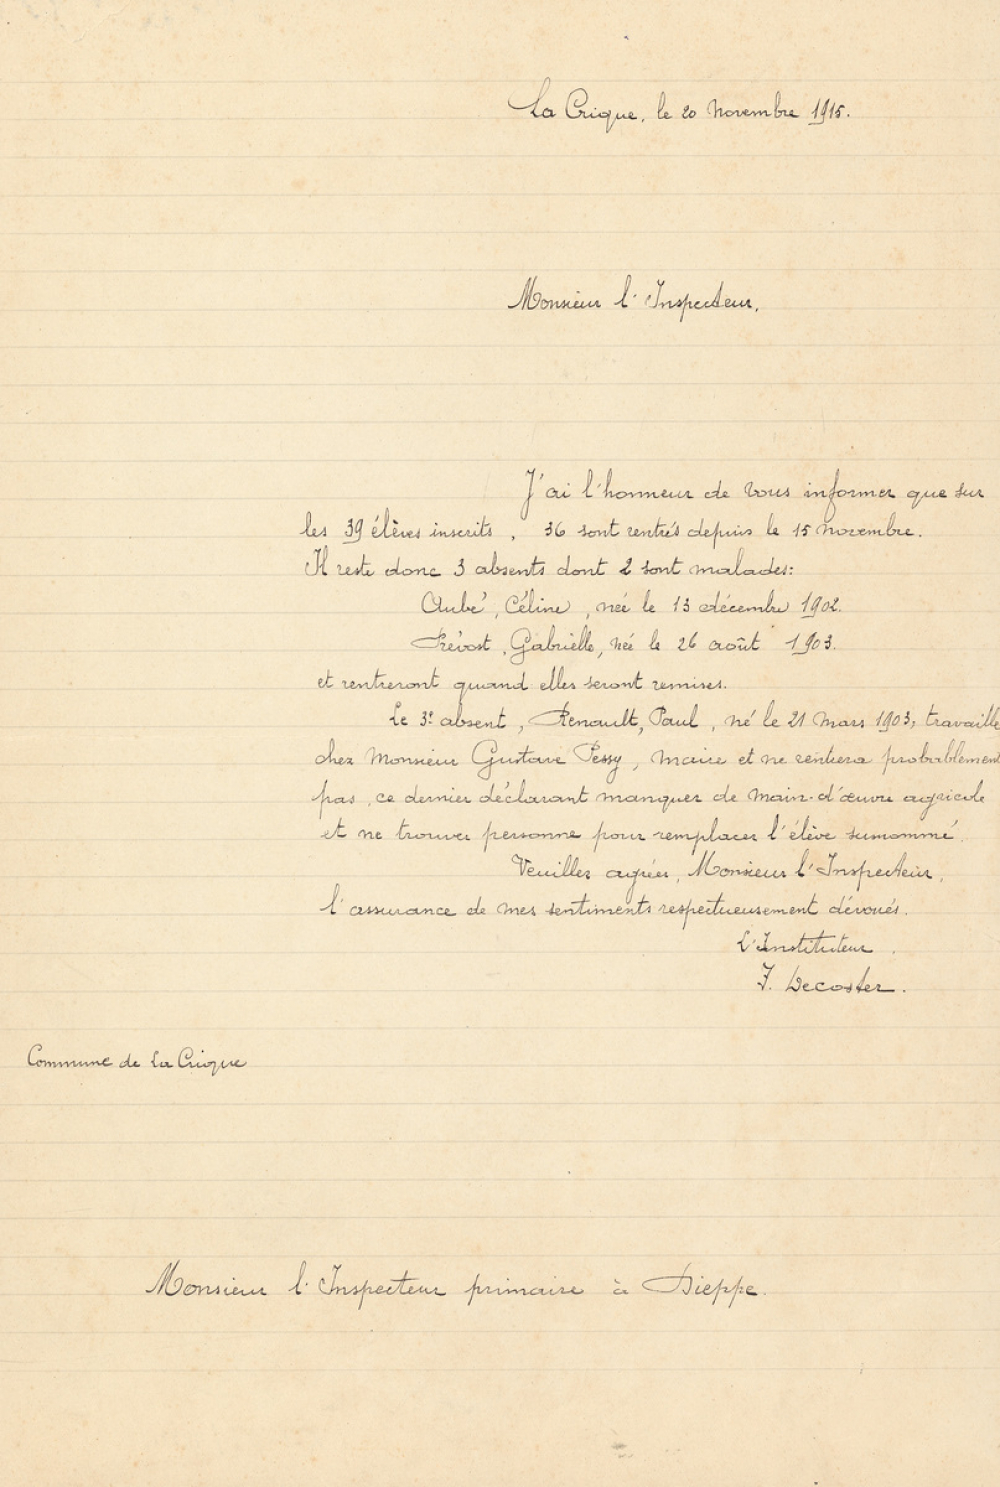 La Crique, le 20 Novembre 1915.
Monsieur l'Inspecteur,
J'ai l'honneur de vous informer que sur
les 39 élèves inscrits, 36 sont rentrés depuis le 15 novembre.
Il reste donc 3 absents dont 2 sont malades:
Aubé, Céline, née le 13 décembre 1902.
Prévost, Gabrielle, née le 26 août 1903.
et rentreront quand elles seront remises.
Le 3e absent, Renault, Paul, né le 21 mars 1903, travaille
chez Monsieur Gustave Pessy, maire et ne rentrera probablement
pas, ce dernier déclarant manquer de main-d'œuvre agricole
et ne trouver personne pour remplacer l'élève surnommé.
Veuillez agréer, Monsieur l'Inspecteur,
l'assurance de mes sentiments respectueusement dévoués.
L'Instituteur.
F. Decoster.
Commune de La Crique
Monsieur l'Inspecteur primaire à Dieppe.